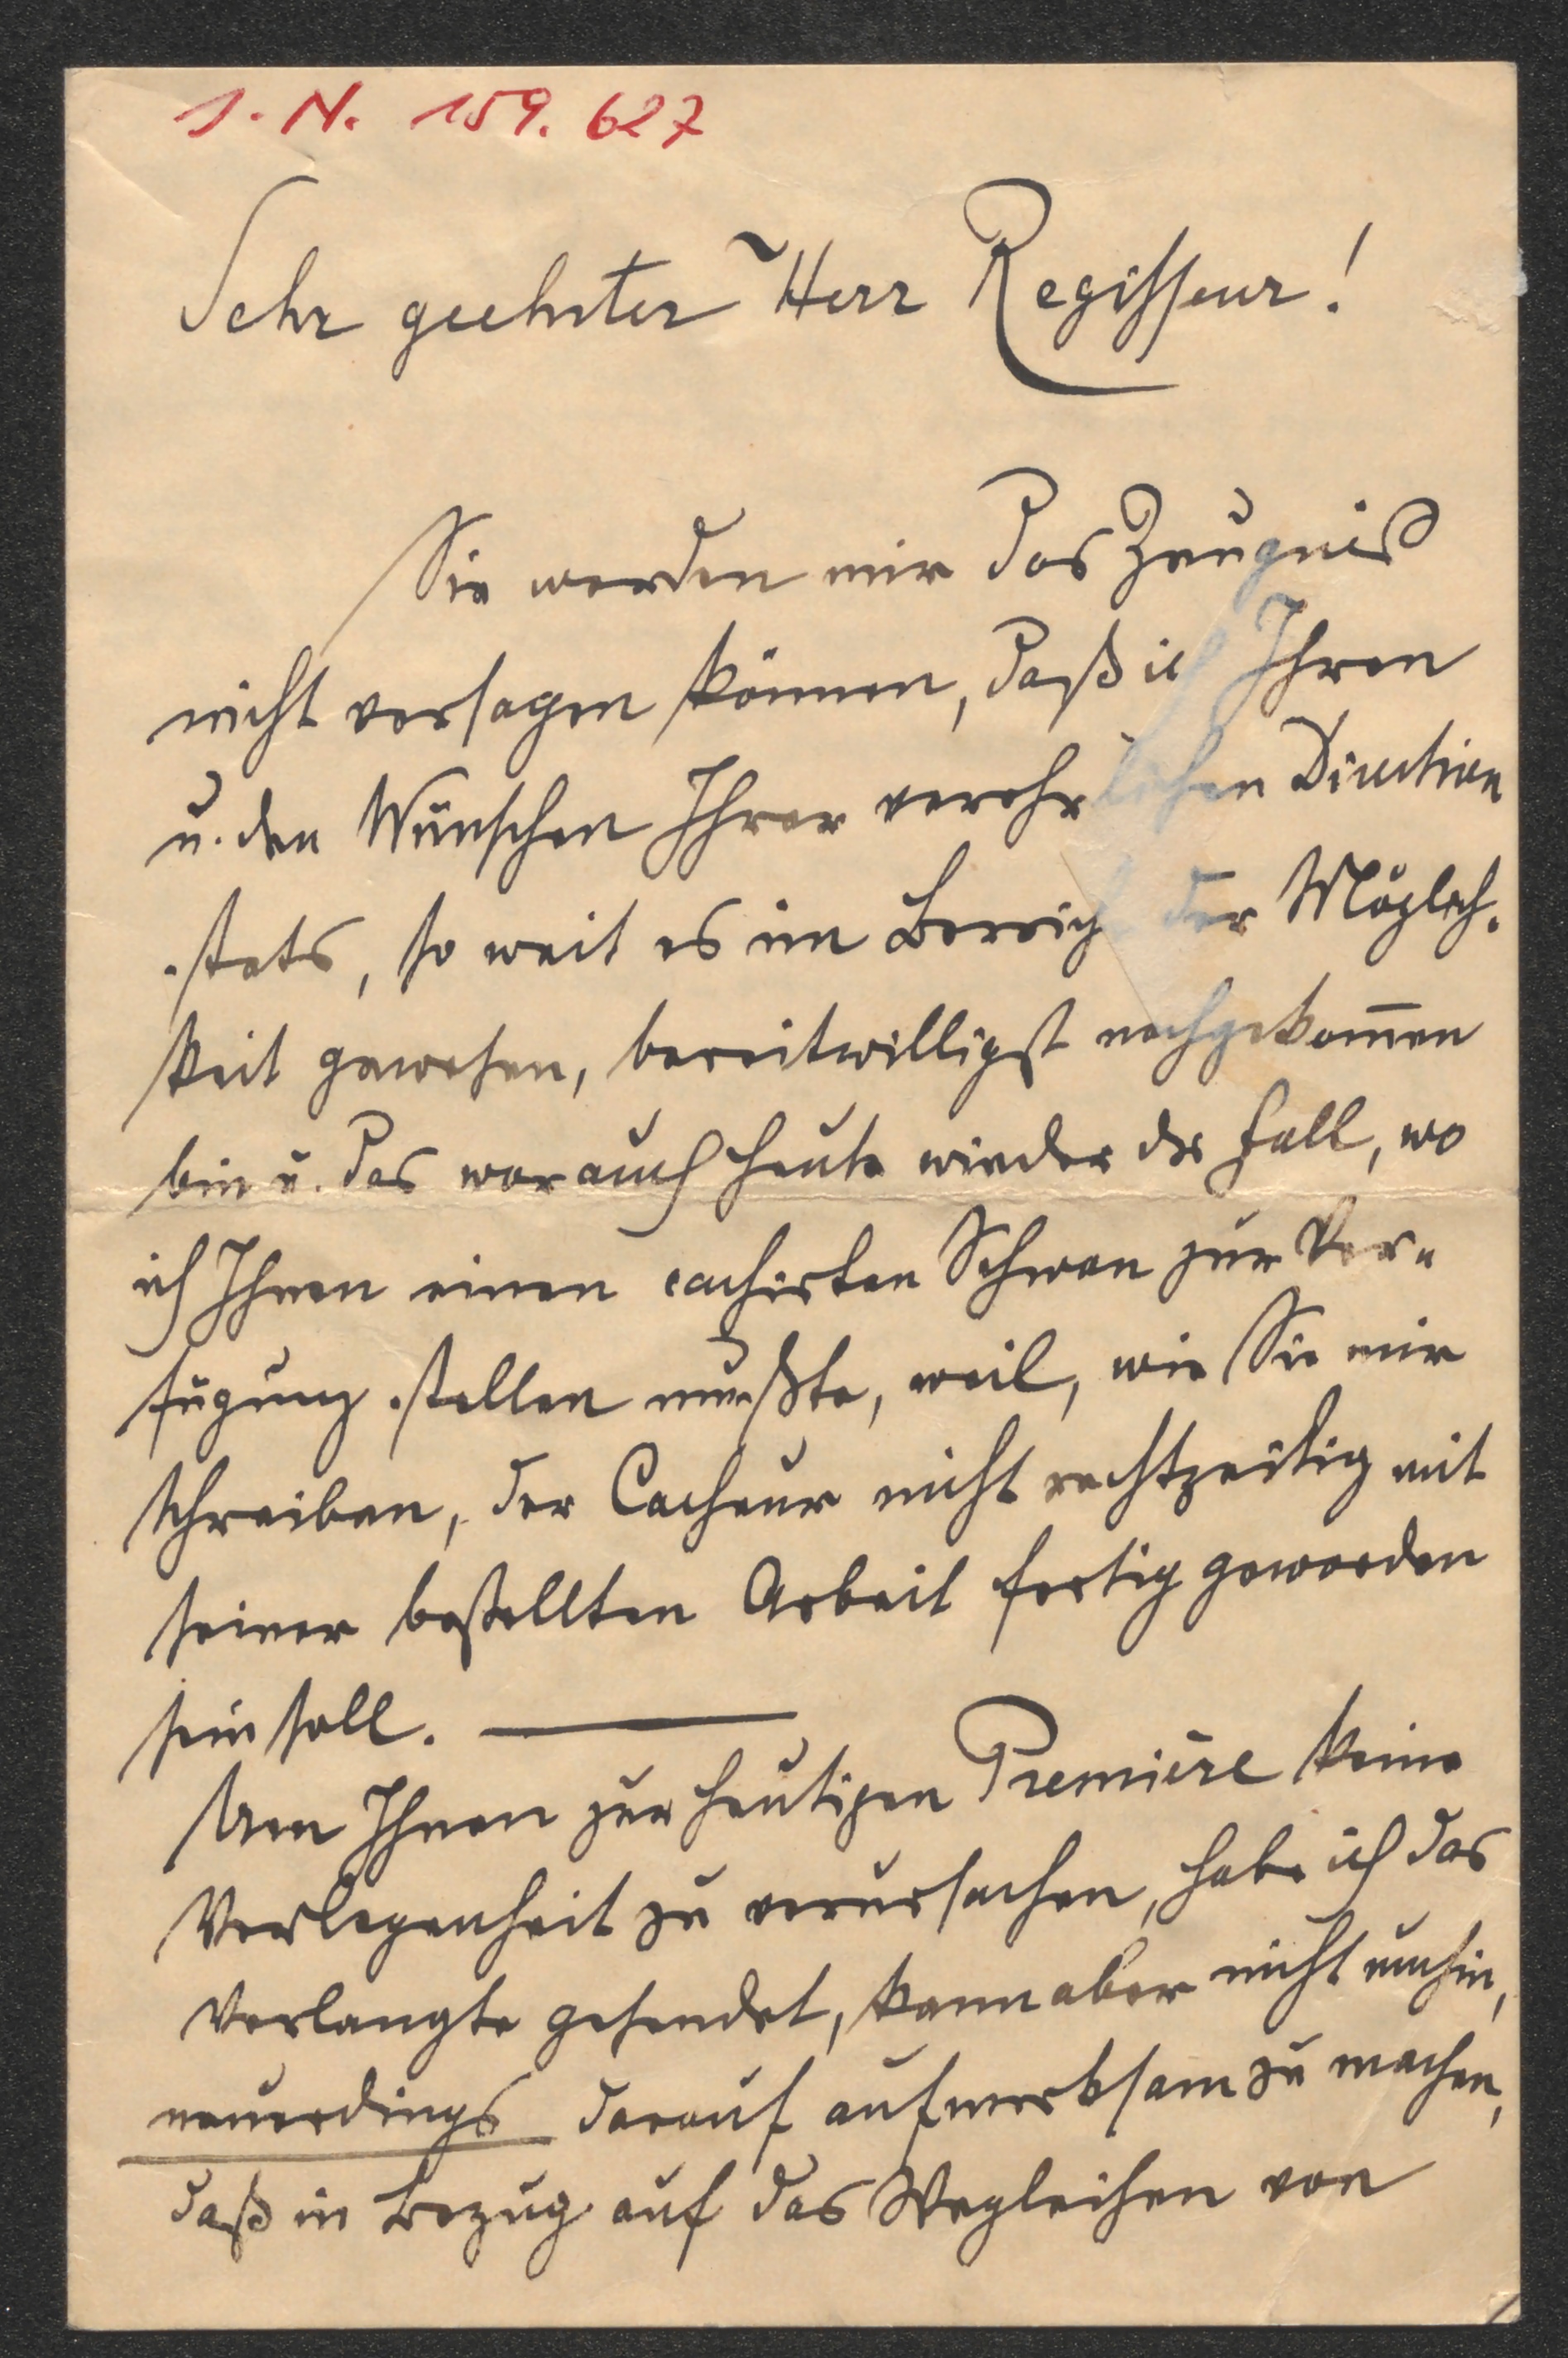 I. N. 159.627
Sehr geehrter Herr Regisseur!
Sie werden mir das Zeugniß
nicht versagen können, daß ich Ihren
u. den Wünschen Ihrer verehrlichen Direction
stets, so weit es im Bereich der Möglich-
keit gewesen, bereitwilligst nachgekom̅en
bin u. das war auch heute wieder der Fall, wo
ich Ihnen einen cachirten Schwan zur Ver-
fügung stellen mußte, weil, wie Sie mir
schreiben, der Cacheur nicht rechtzeitig mit
seiner bestellten Arbeit fertig geworden
sein soll. —
Um Ihnen zur heutigen Première keine
Verlegenheit zu verursachen, habe ich das
Verlangte gesendet, kann aber nicht umhin,
neuerdings darauf aufmerksam zu machen,
daß in Bezug auf das Wegleihen von